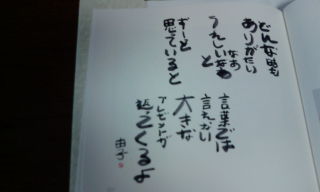 どんな時も
ありがたい
なあ
うれしいなぁ
と
ずーと
思っていると
言葉では
言えない
大きな
プレゼントが
返ってくるよ